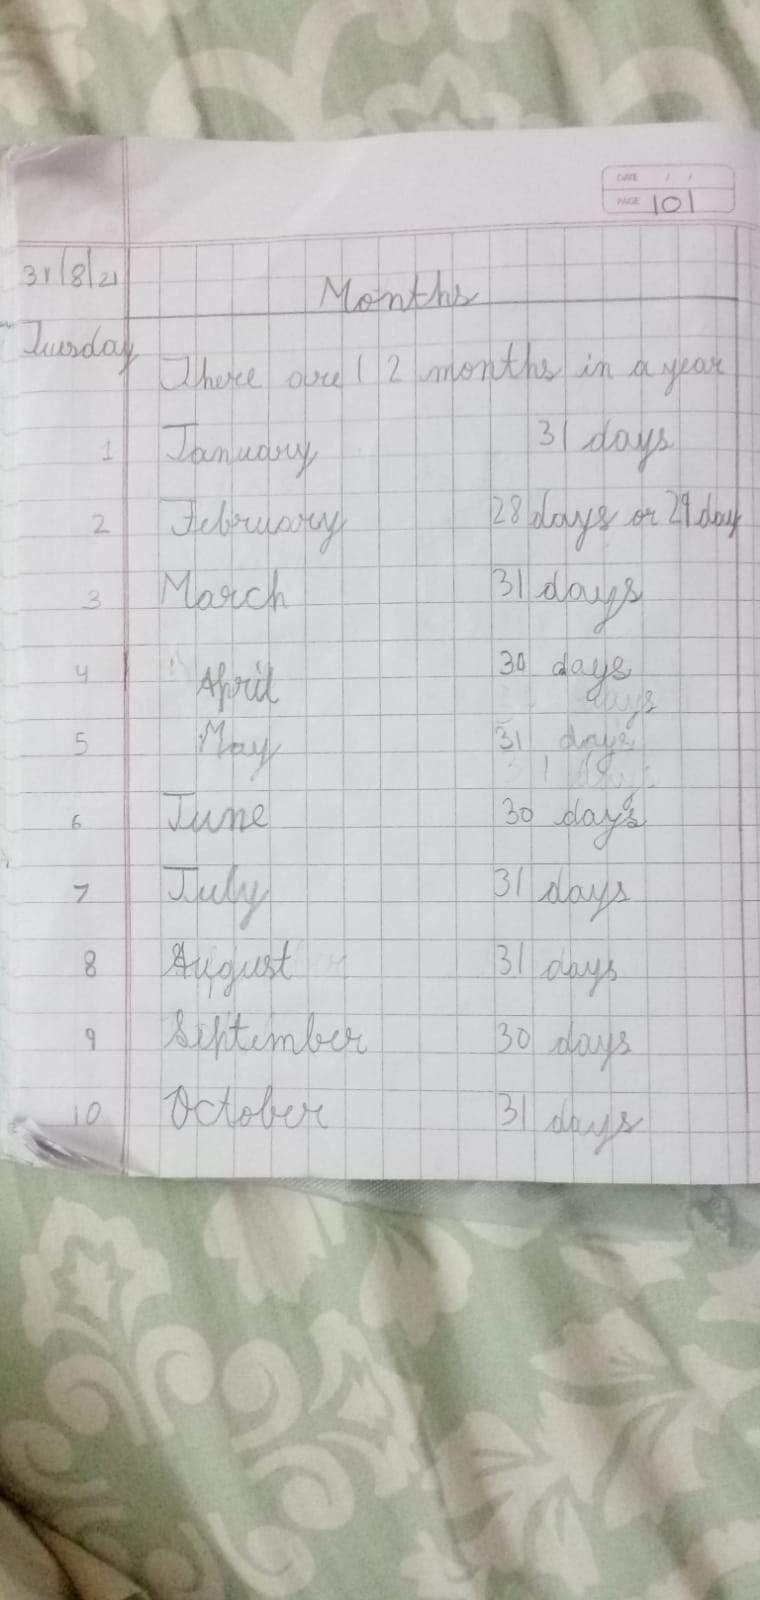 DATE / /
PAGE 101
31/8/21
Months
Tuesday
There are 12 months in a year
1 January 31 days
2 February 28 days or 29 day
3 March 31 days
4 April 30 days
days
5 May 31 days
6 June 30 days
7 July 31 days
8 August 31 days
9 September 30 days
10 October 31 days